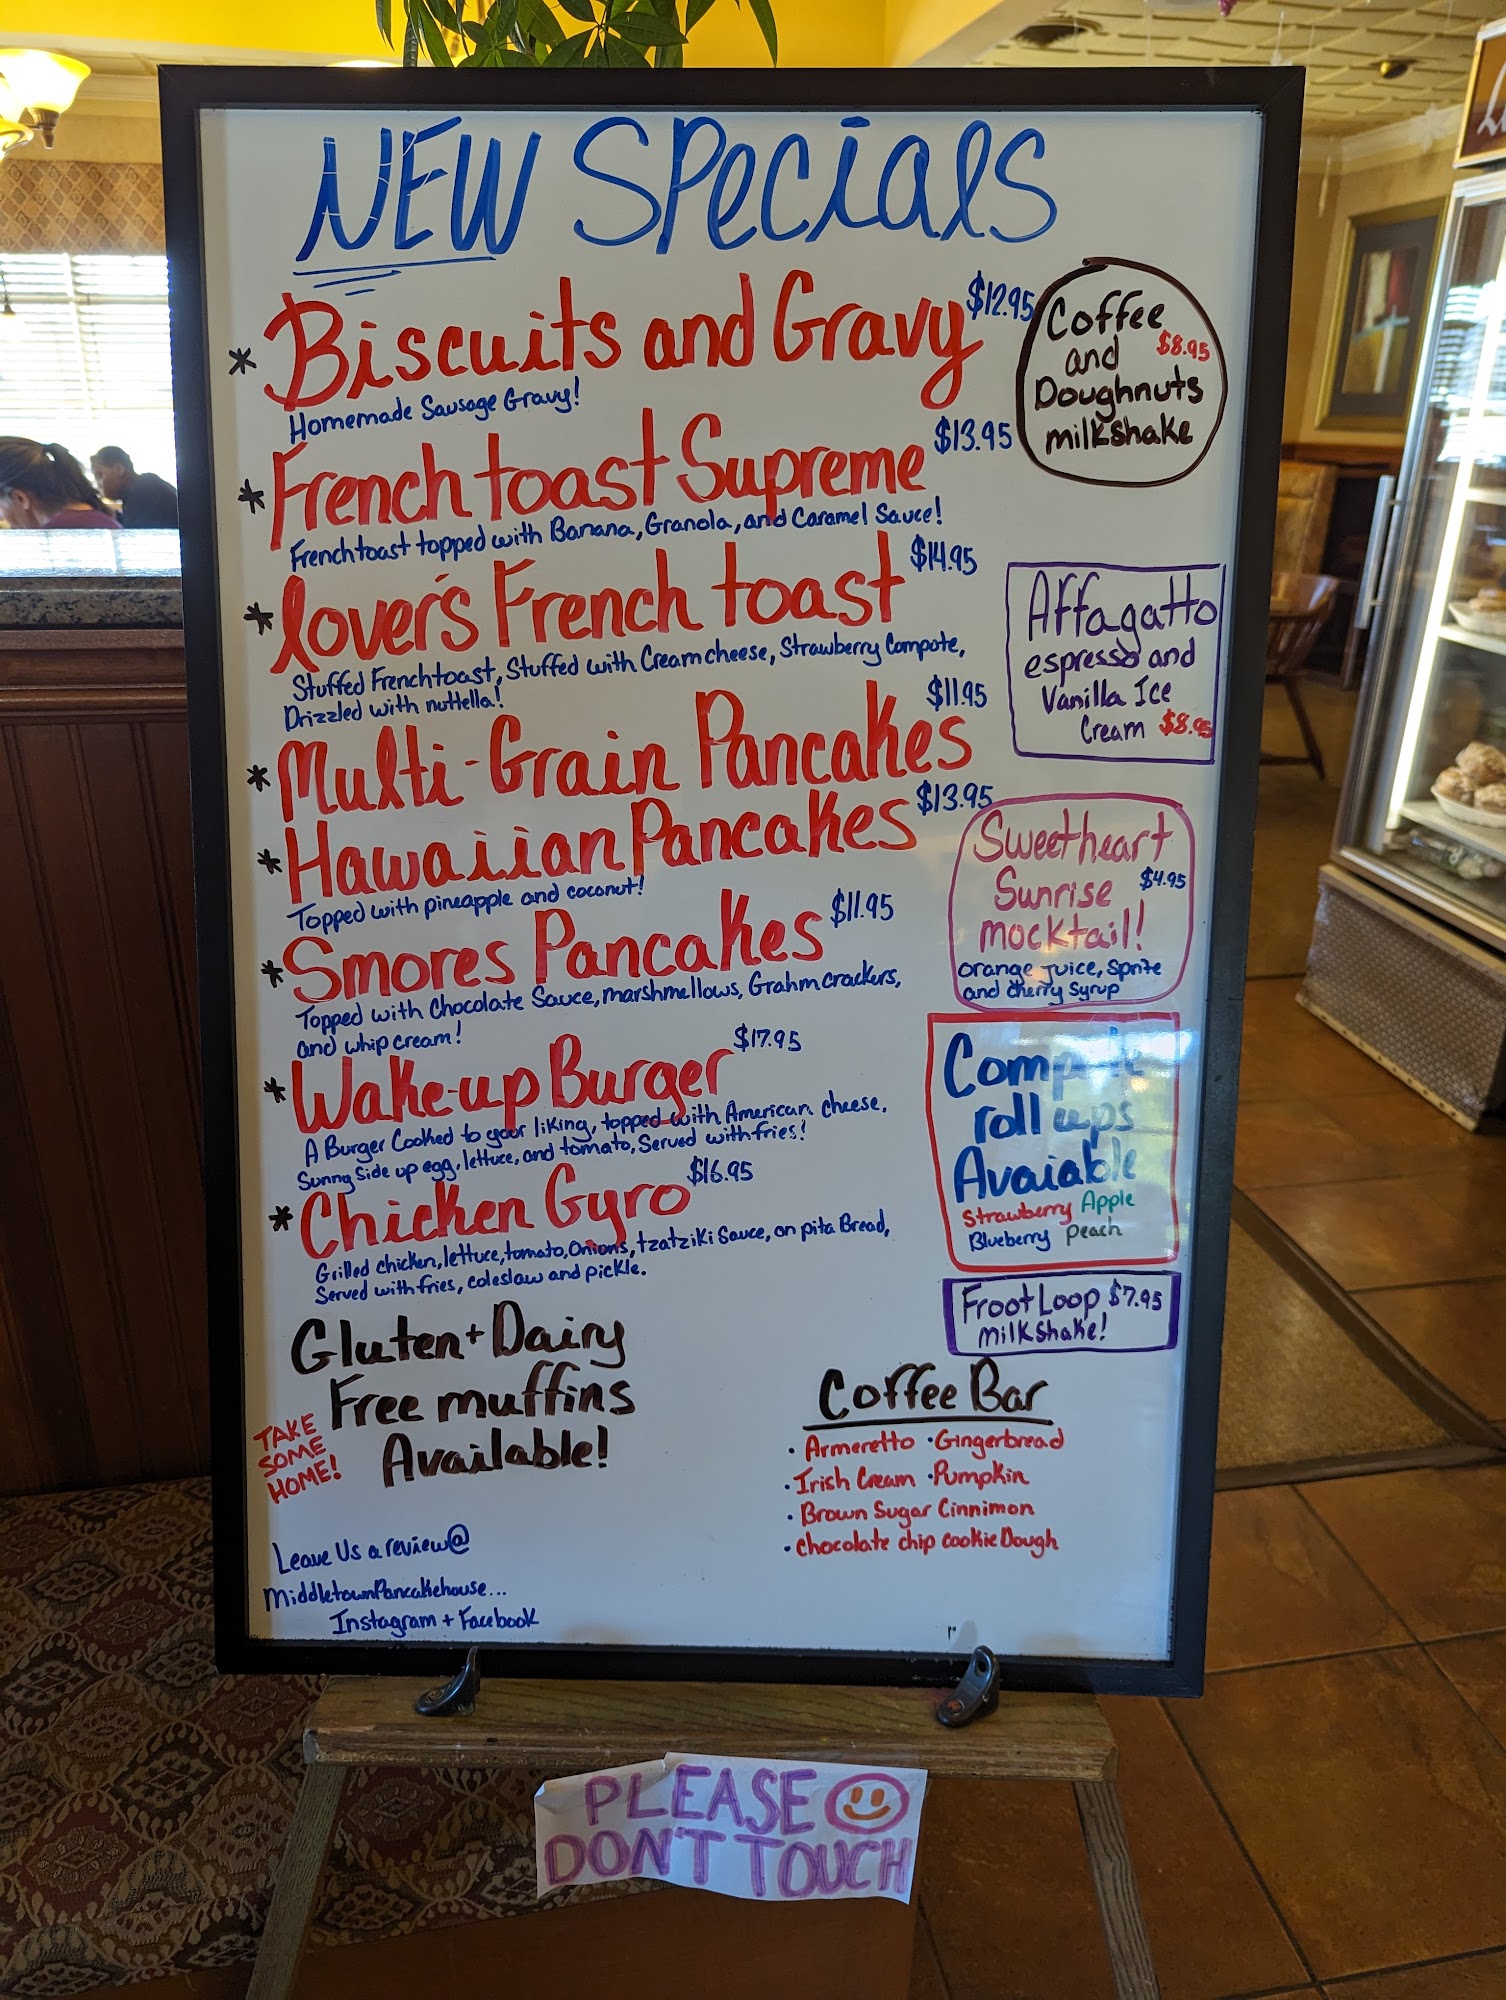 NEW Specials
* Biscuits and Gravy $12.95
Homemade Sausage Gravy!
* French toast Supreme $13.95
French toast topped with Banana, Granola, and Caramel Sauce!
* lover's French toast $14.95
Stuffed French toast, Stuffed with Cream cheese, Strawberry Compote,
Drizzled with nuttella!
* Multi-Grain Pancakes $11.95
* Hawaiian Pancakes $13.95
Topped with pineapple and coconut!
* Smores Pancakes $11.95
Topped with Chocolate Sauce, marshmellows, Grahm crackers,
and whip cream!
* Wake-up Burger $17.95
A Burger Cooked to your liking, topped with American cheese,
Sunny Side up egg, lettuce, and tomato, Served with fries!
* Chicken Gyro $16.95
Grilled chicken, lettuce, tomato, Onions, tzatziki Sauce, on pita Bread,
Served with fries, coleslaw and pickle.
Gluten + Dairy
Free muffins
Available!
TAKE
SOME
HOME!
Leave Us a review @
MiddletownPancakehouse...
Instagram + Facebook
Coffee
and $8.95
Doughnuts
milkshake
Affagatto
espresso and
Vanilla Ice
Cream $8.95
Sweetheart
Sunrise $4.95
mocktail!
orange juice, Sprite
and cherry Syrup
roll ups
Avaiable
Strawberry Apple
Blueberry peach
Froot Loop $7.95
milkshake!
Coffee Bar
· Armeretto · Gingerbread
· Irish Cream · Pumpkin
· Brown Sugar Cinnimon
· chocolate chip cookie Dough
PLEASE
DON'T TOUCH